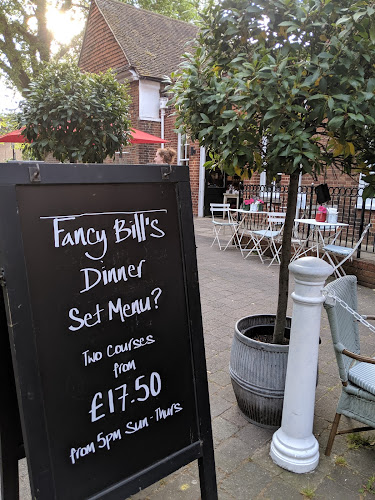 Fancy Bill's
Dinner
Set Menu?
Two courses
from
£17.50
from 5pm Sun-Thurs